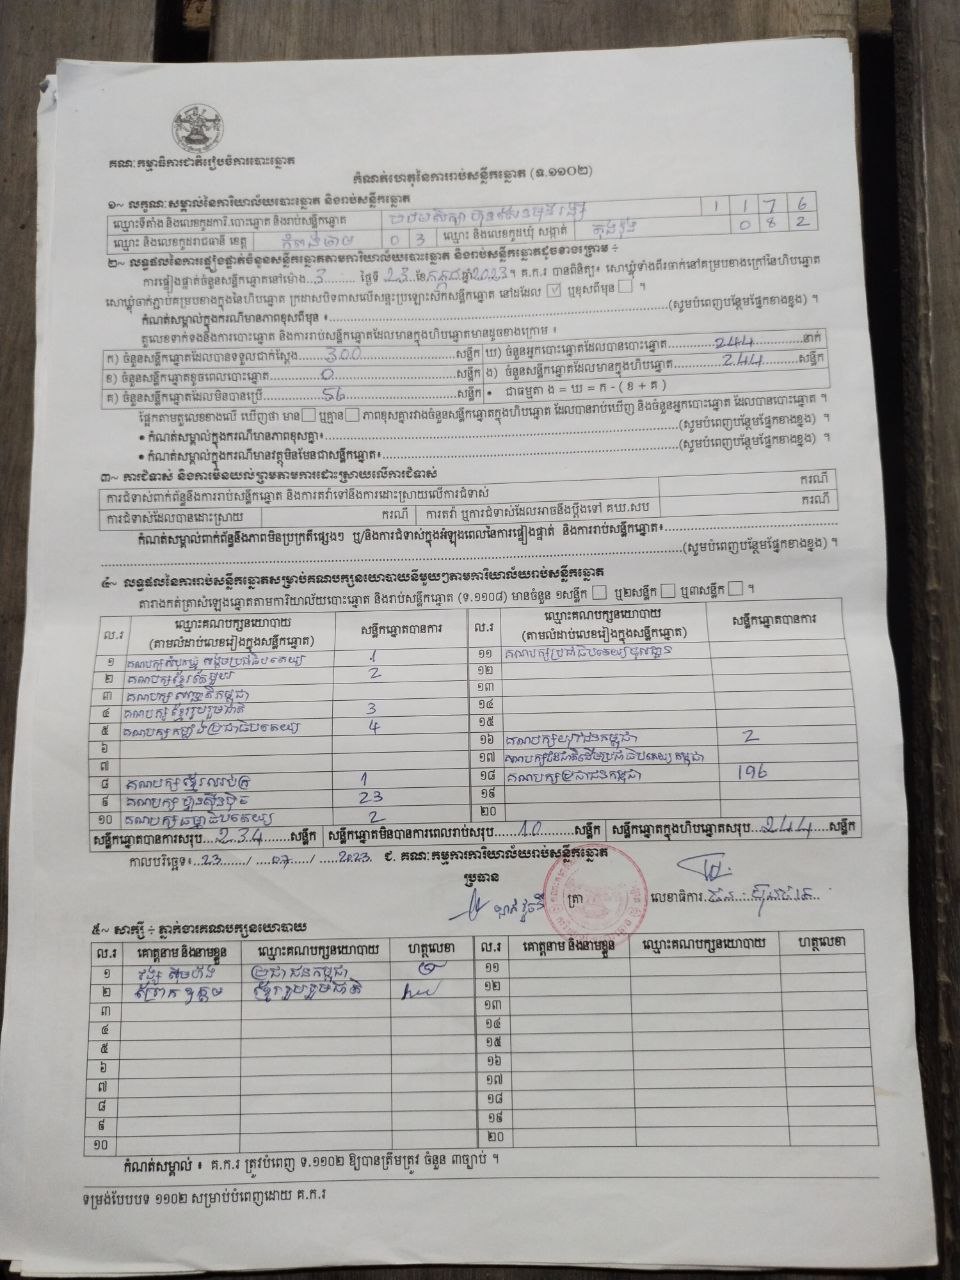 គណៈកម្មាធិការជាតិរៀបចំការបោះឆ្នោត
កំណត់ហេតុនៃការរាប់សន្លឹកឆ្នោត (ទ.១១០២)
១~ លក្ខណៈសម្គាល់នៃការិយាល័យបោះឆ្នោត និងរាប់សន្លឹកឆ្នោត
ឈ្មោះទីតាំង និងលេខកូដការិ.បោះឆ្នោត និងរាប់សន្លឹកឆ្នោត 1 1 7 6
ឈ្មោះ និងលេខកូដរាជធានី ខេត្ត កំពង់ចាម 0 3 ឈ្មោះ និងលេខកូដឃុំ សង្កាត់ 0 8 2
២~ លទ្ធផលនៃការផ្ទៀងផ្ទាត់ចំនួនសន្លឹកឆ្នោតតាមការិយាល័យបោះឆ្នោត និងរាប់សន្លឹកឆ្នោតដូចខាងក្រោម ÷
ការផ្ទៀងផ្ទាត់ចំនួនសន្លឹកឆ្នោតនៅម៉ោង 3 ថ្ងៃទី 23 ខែ កក្កដា ឆ្នាំ 2023 ។ គ.ក.រ បានពិនិត្យ៖ សោឃ្លុំទាំងពីរចាក់នៅគម្របខាងក្រៅនៃហិបឆ្នោត
សោឃ្លុំចាក់ភ្ជាប់គម្របខាងក្នុងនៃហិបឆ្នោត ក្រដាសបិទពាសលើសន្ទះប្រឡោះស៊កសន្លឹកឆ្នោត នៅដដែល ☑ ឬខុសពីមុន ☐ ។
កំណត់សម្គាល់ក្នុងករណីមានភាពខុសពីមុន ៖ (សូមបំពេញបន្ថែមផ្នែកខាងខ្នង) ។
តួលេខទាក់ទងនឹងការបោះឆ្នោត និងការរាប់សន្លឹកឆ្នោតដែលមានក្នុងហិបឆ្នោតមានដូចខាងក្រោម ៖
ក) ចំនួនសន្លឹកឆ្នោតដែលបានទទួលជាក់ស្តែង 300 សន្លឹក ឃ) ចំនួនអ្នកបោះឆ្នោតដែលបានបោះឆ្នោត 244 នាក់
ខ) ចំនួនសន្លឹកឆ្នោតខូចពេលបោះឆ្នោត 0 សន្លឹក ង) ចំនួនសន្លឹកឆ្នោតដែលមានក្នុងហិបឆ្នោត 244 សន្លឹក
គ) ចំនួនសន្លឹកឆ្នោតដែលមិនបានប្រើ 56 សន្លឹក • ជាធម្មតា ង = ឃ = ក - ( ខ + គ )
ផ្អែកតាមតួលេខខាងលើ ឃើញថា មាន ☐ ឬគ្មាន ☐ ភាពខុសគ្នារវាងចំនួនសន្លឹកឆ្នោតក្នុងហិបឆ្នោត ដែលបានរាប់ឃើញ និងចំនួនអ្នកបោះឆ្នោត ដែលបានបោះឆ្នោត ។
• កំណត់សម្គាល់ក្នុងករណីមានភាពខុសគ្នា៖ (សូមបំពេញបន្ថែមផ្នែកខាងខ្នង) ។
• កំណត់សម្គាល់ក្នុងករណីមានវត្ថុមិនមែនជាសន្លឹកឆ្នោត៖ (សូមបំពេញបន្ថែមផ្នែកខាងខ្នង) ។
៣~ ការជំទាស់ និងការមិនយល់ព្រមតាមការដោះស្រាយលើការជំទាស់
ការជំទាស់ពាក់ព័ន្ធនឹងការរាប់សន្លឹកឆ្នោត និងការតវ៉ាទៅនឹងការដោះស្រាយលើការជំទាស់ ករណី
ការជំទាស់ដែលបានដោះស្រាយ ករណី ការតវ៉ា ឬការជំទាស់ដែលអាចនឹងប្តឹងទៅ គឃ.សប ករណី
កំណត់សម្គាល់ពាក់ព័ន្ធនឹងភាពមិនប្រក្រតីផ្សេងៗ ឬ/និងការជំទាស់ក្នុងអំឡុងពេលនៃការផ្ទៀងផ្ទាត់ និងការរាប់សន្លឹកឆ្នោត៖
(សូមបំពេញបន្ថែមផ្នែកខាងខ្នង) ។
៤~ លទ្ធផលនៃការរាប់សន្លឹកឆ្នោតសម្រាប់គណបក្សនយោបាយនីមួយៗតាមការិយាល័យរាប់សន្លឹកឆ្នោត
តារាងកត់ត្រាសំឡេងឆ្នោតតាមការិយាល័យបោះឆ្នោត និងរាប់សន្លឹកឆ្នោត (ទ.១១០៨) មានចំនួន ១សន្លឹក ☐ ឬ២សន្លឹក ☐ ឬ៣សន្លឹក ☐ ។
ល.រ ឈ្មោះគណបក្សនយោបាយ (តាមលំដាប់លេខរៀងក្នុងសន្លឹកឆ្នោត) សន្លឹកឆ្នោតបានការ ល.រ ឈ្មោះគណបក្សនយោបាយ (តាមលំដាប់លេខរៀងក្នុងសន្លឹកឆ្នោត) សន្លឹកឆ្នោតបានការ
១ គណបក្សសំបុកឃ្មុំ សង្គមប្រជាធិបតេយ្យ 1 ១១ គណបក្សប្រជាធិបតេយ្យមូលដ្ឋាន
២ គណបក្សខ្មែរតែមួយ 2 ១២
៣ គណបក្សសញ្ជាតិកម្ពុជា ១៣
៤ គណបក្សខ្មែររួបរួមជាតិ 3 ១៤
៥ គណបក្សកម្លាំងប្រជាធិបតេយ្យ 4 ១៥
៦ ១៦ គណបក្សយុវជនកម្ពុជា 2
៧ ១៧ គណបក្សជនជាតិដើមប្រជាធិបតេយ្យកម្ពុជា
៨ គណបក្សខ្មែរឈប់ក្រ 1 ១៨ គណបក្សប្រជាជនកម្ពុជា 196
៩ គណបក្សហ៊្វុនស៊ិនប៉ិច 23 ១៩
១០ គណបក្សធម្មាធិបតេយ្យ 2 ២០
សន្លឹកឆ្នោតបានការសរុប 234 សន្លឹក សន្លឹកឆ្នោតមិនបានការពេលរាប់សរុប 10 សន្លឹក សន្លឹកឆ្នោតក្នុងហិបឆ្នោតសរុប 244 សន្លឹក
កាលបរិច្ឆេទ៖ 23 / 07 / 2023 ជ. គណៈកម្មការការិយាល័យរាប់សន្លឹកឆ្នោត
ប្រធាន
ត្រា លេខាធិការ
៥~ សាក្សី ÷ ភ្នាក់ងារគណបក្សនយោបាយ
ល.រ គោត្តនាម និងនាមខ្លួន ឈ្មោះគណបក្សនយោបាយ ហត្ថលេខា ល.រ គោត្តនាម និងនាមខ្លួន ឈ្មោះគណបក្សនយោបាយ ហត្ថលេខា
១ ប្រជាជនកម្ពុជា ១១
២ ខ្មែររួបរួមជាតិ ១២
៣ ១៣
៤ ១៤
៥ ១៥
៦ ១៦
៧ ១៧
៨ ១៨
៩ ១៩
១០ ២០
កំណត់សម្គាល់ ៖ គ.ក.រ ត្រូវបំពេញ ទ.១១០២ ឱ្យបានត្រឹមត្រូវ ចំនួន ៣ច្បាប់ ។
ទម្រង់បែបបទ ១១០២ សម្រាប់បំពេញដោយ គ.ក.រ